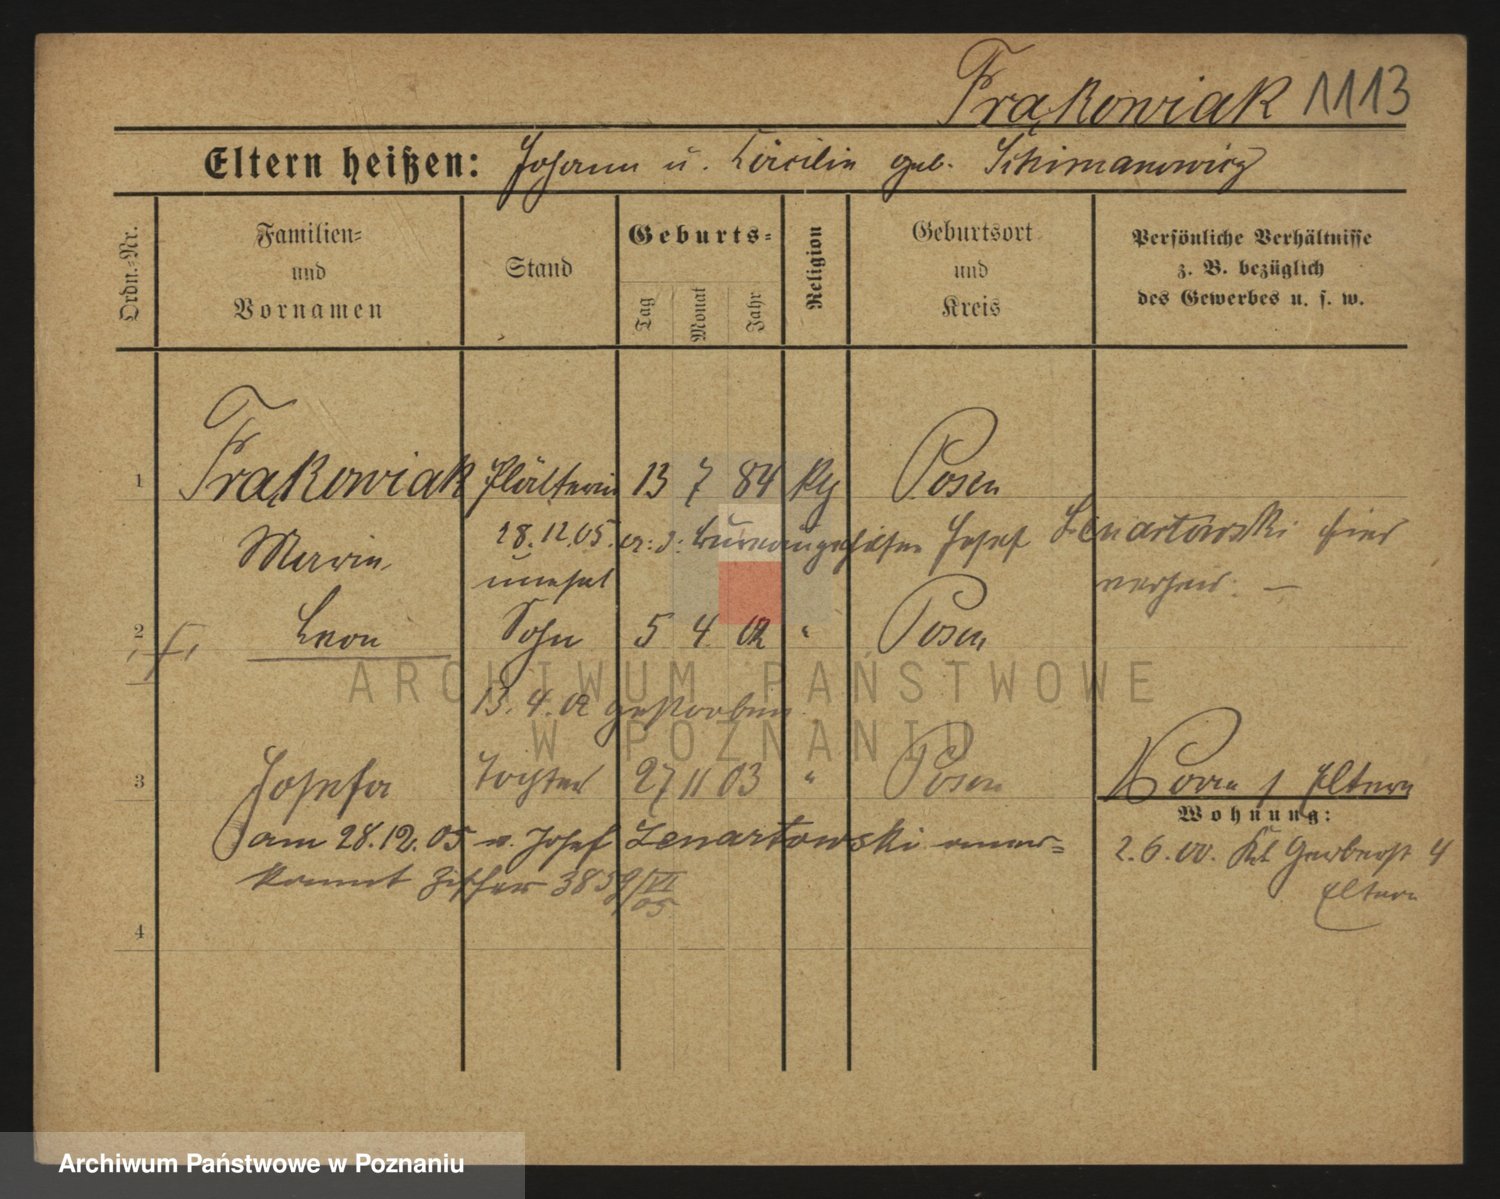 Frąkowiak 1113
Eltern heißen: Johann u. Cäcilie geb. Schimanowicz
Ordn.-Nr.
Familien-
und
Vornamen
Stand
Geburts-
Tag
Monat
Jahr
Religion
Geburtsort
und
Kreis
Persönliche Verhältnisse
z. B. bezüglich
des Gewerbes u. s. w.
1 Frąkowiak Plätterin 13 7 84 Posen
Marie 28.12.05. Josef Lenartowski hier
unehel verheir. —
2 Leon Sohn 5 4 02 " Posen
13. 4. 02 gestorben
3 Josefa Tochter 27 11 03 " Posen Eltern
Wohnung:
am 28.12.05 v. Josef Lenartowski aner=
kannt 2.6.00. Kl Gerberstr 4
Eltern
4
ARCHIWUM PAŃSTWOWE
W POZNANIU
Archiwum Państwowe w Poznaniu